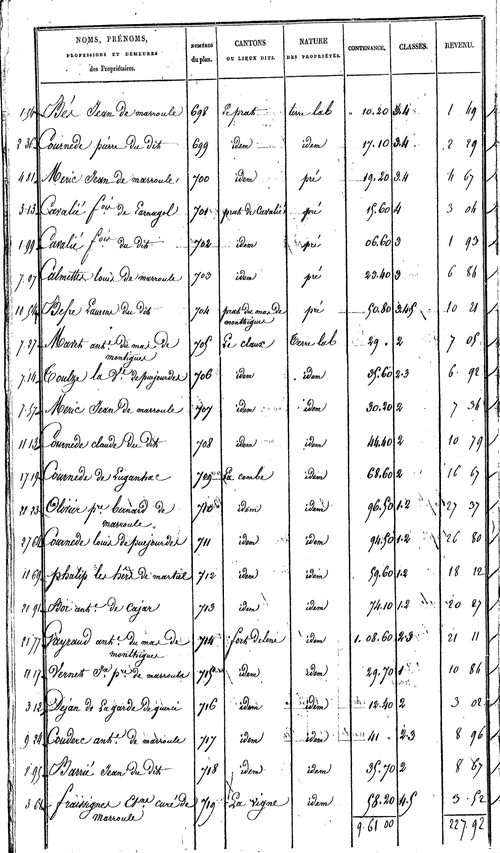 NOMS, PRÉNOMS, PROFESSIONS ET DEMEURES des Propriétaires. NUMÉROS du plan. CANTONS OU LIEUX DITS. NATURE DES PROPRIÉTÉS. CONTENANCE. CLASSES. REVENU.
Jean de marroule 698 Le prat terre lab 10.20 3.4 1 49
Cournede pierre du dit 699 idem idem 17.10 3.4 2 29
Meric Jean de marroule 700 idem pré 19.20 3.4 4 67
3.13 Cavalié de Larnagol 701 prat de Cavalié pré 15.60 4 3 04
1.99 Cavalié du dit 702 idem pré 06.60 3 1 93
7.07 Calmettes louis de marroule 703 idem pré 23.40 3 6 86
10.54 Laurens du dit 704 prat du mas de monthigues pré 50.80 3.4.5 10 21
7.27 ant.e du mas de montigues 705 Le claux Terre lab 29. 2 7 05
7.14 la V.e de puijourdes 706 idem idem 35.60 2.3 6 92
7.57 Meric Jean de marroule 707 idem idem 30.20 2 7 36
11.13 Cournede claude du dit 708 idem idem 44.40 2 10 79
17.19 Cournede de Luganhac 709 La combe idem 68.60 2 16 67
p.re bernard de marroule 710 idem idem 96.50 1.2 27 37
Cournede louis de puijourdes 711 idem idem 94.50 1.2 26 80
phalip les hérs de martial 712 idem idem 59.60 1.2 18 12
ant.e de Cajar 713 idem idem 74.10 1.2 20 27
21.77 Payraud ant.e du mas de monthigues 714 idem 1.08.60 2.3 21 11
11.17 Vernet p.re de marroule 715 idem idem 29.70 1 10 86
3.12 Dejan de Lagarde 716 idem idem 12.40 2 3 02
Couderc ant.e de marroule 717 idem idem 41. 2.3 8 96
8.95 Barrié Jean du dit 718 idem idem 35.70 2 8 67
fraissignes curé de marroule 719 La vigne idem 58.20 4.5 3.52
9.61 00 227.92